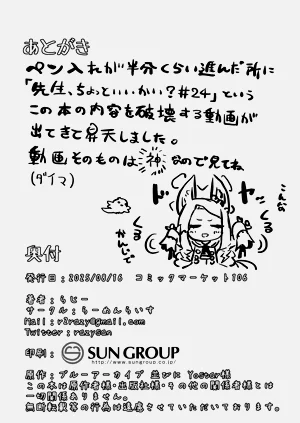 あとがき
ペン入れが半分くらい進んだ所に
「先生、ちょっといいかい？#24」という
この本の内容を破壊する動画が
出てきて昇天しました。
動画そのものは神なので見てね
(ダイマ)
こんな
ド
ヤ
くる
くる
かんじで
奥付
発行日：2025/08/16　コミックマーケット106
著者：らじー
サークル：らーめんらいす
Mail：r3razy@gmail.com
Twitter：razysan
印刷：SUN GROUP
http://www.sungroup.co.jp/
原作：ブルーアーカイブ 並びに Yostar様
この本は原作者様・出版社様・その他の関係者様とは
一切関係ありません。
無断転載等の行為は遠慮させていただいております。